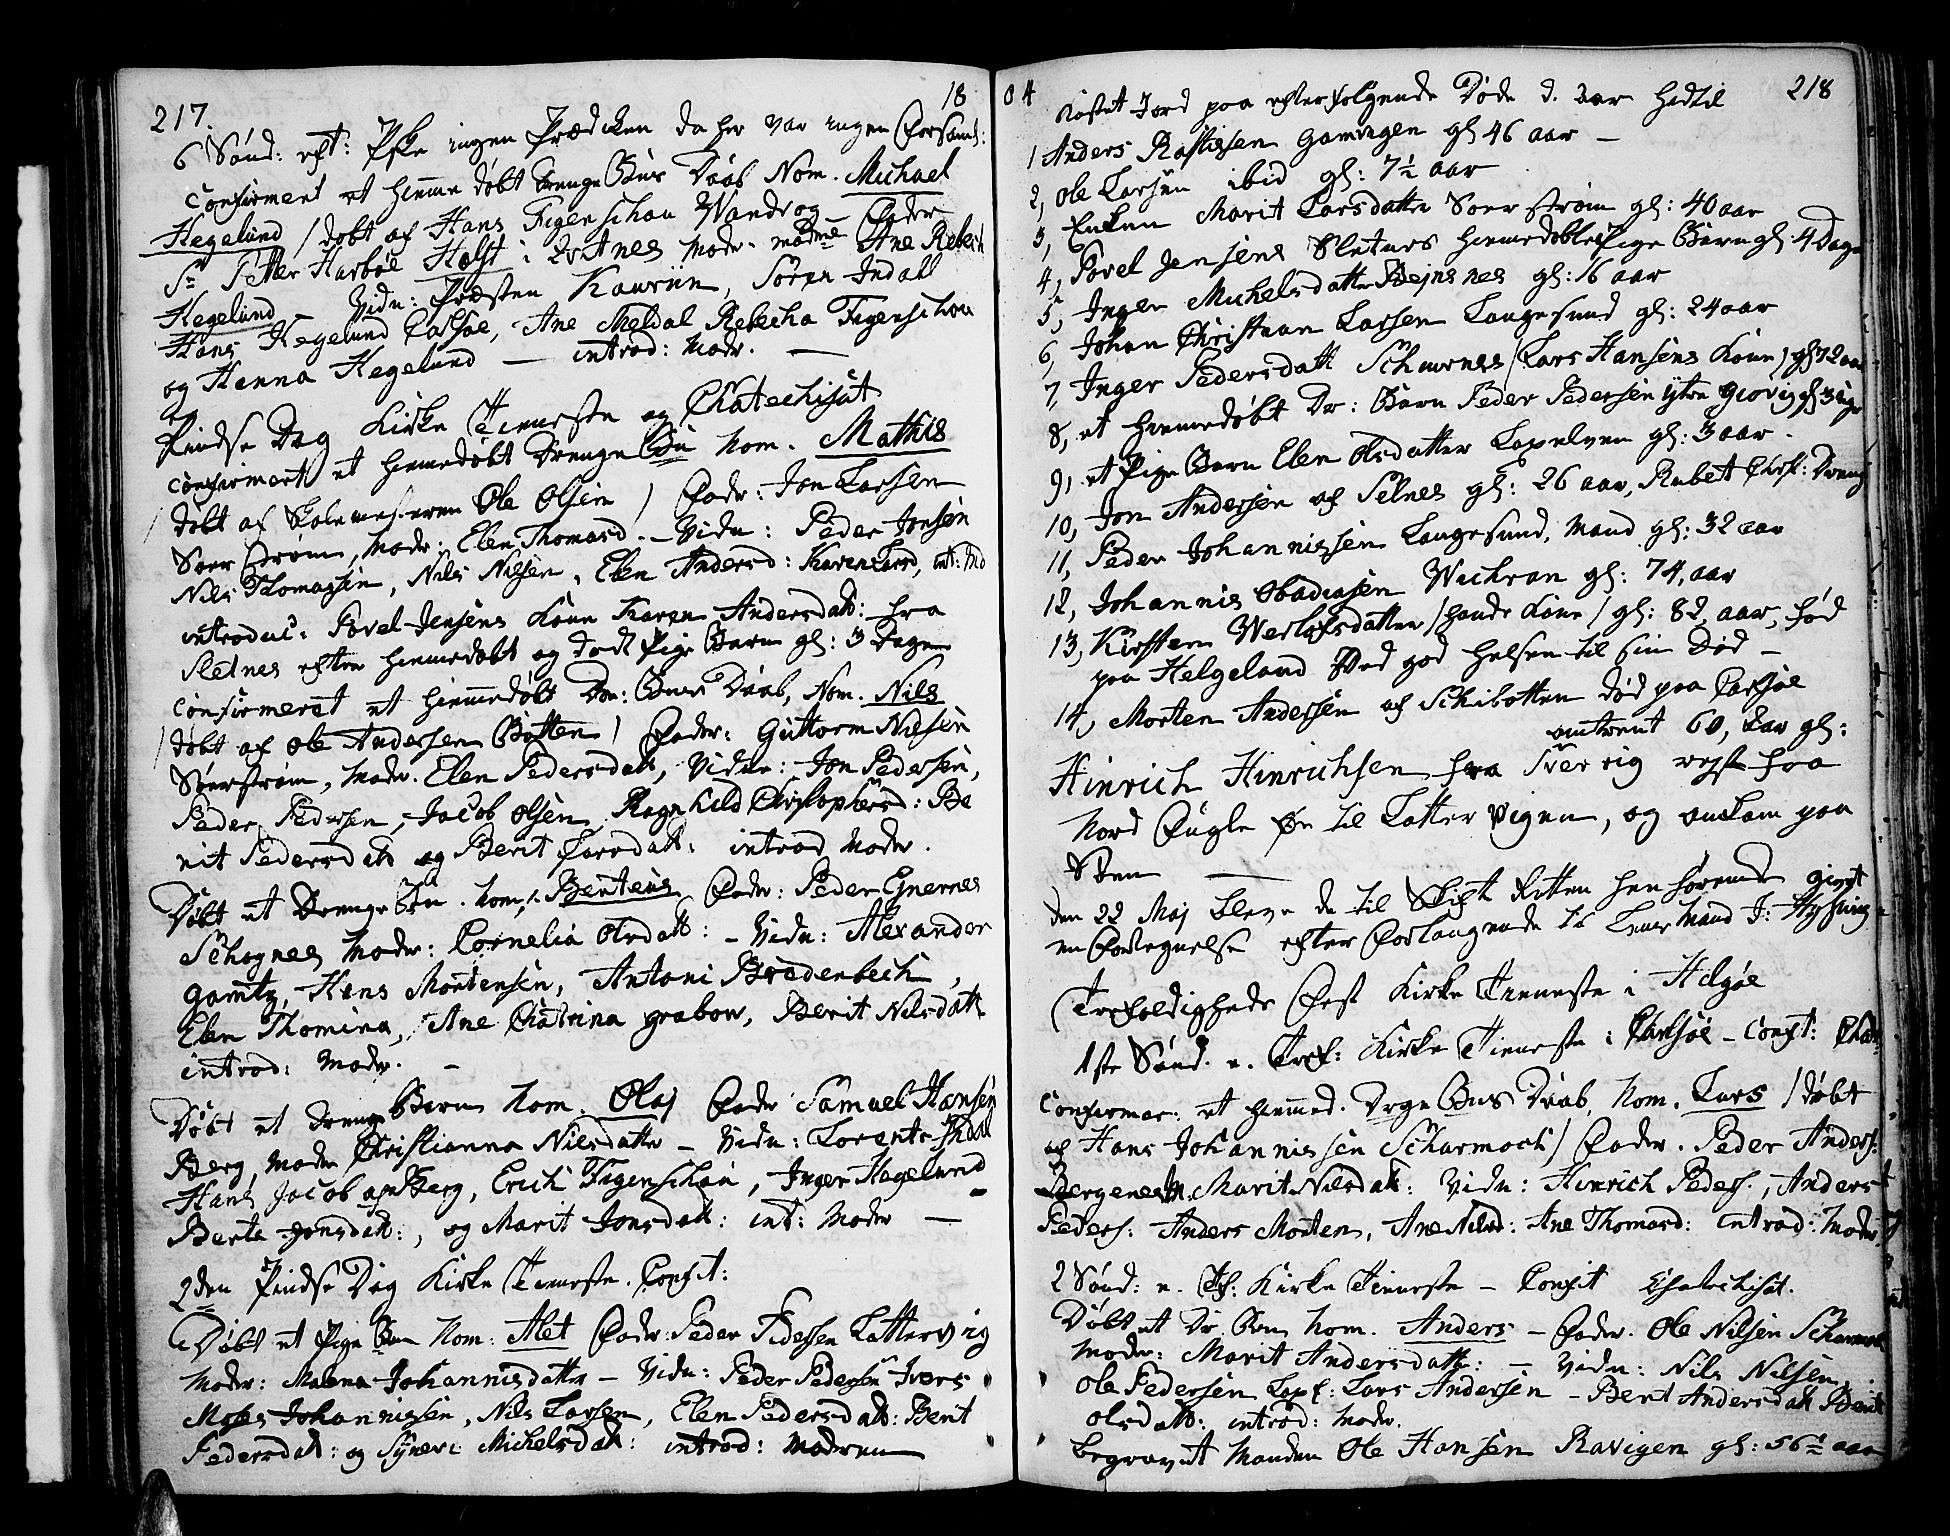 217.
18
6 Sønd: eft: Pske ingen Prædicken da her var ingen Forsaml:
Confirmert et hiemme døbt Drenge Bns Daab Nom. Michael
Hegelund / døbt af Hans Figenschau Wandrog Fader
Sr. Petter Harboe Holst i Qvitnes Modr. madme Ane Rebech
Hegelund – Vidn: Præsten Kauriin, Søren Indahl
Hans Hegelund Carlsøe, Ane Meldal Rebecha Figenschou
og Hanna Hegelund — introd: Modr. —
Pindse Dag Kirke Tieneste og Chatechisat
Confirmert et hiemmedøbt Drenge Bn Nom. Mathis
/ døbt af Skolemesteren Ole Olsen / Fadr: Jon Larsen
Soerstrøm, Modr: Elen Thomasd. – Vidn: Peder Jonsen
Nils Thomassen, Nils Nilsen, Elen Andersd: Karen Larsd, int: Md
introduc: Povel Jensens Kone Karen Andersdatt: fra
Sletnes efter hiemmedøbt og død Pige Barn gl: 3 Dage
Confirmeret et hiemmedøbt Dr: Bns Daab, Nom. Nils
/ døbt af Ole Andersen Botten / Fadr: Guttorm Nilsen
Sørstrøm, Modr. Elen Pedersdatt, Vidn: Jon Pedersen,
Peder Pedersen, Jacob Olsen Ragnhild Christophersd: Be
rit Pedersdatt og Berit Larsdatt: introd Modr.
Døbt et Drenge Bn. Nom: Benteus Fadr: Peder Gnernes
Schognes Modr: Cornelia Olsdatt: – Vidn: Alexander
Gamtz, Hans Mortensen, Antoni Bradenbech,
Elen Thomina, Ane Chatrina Grabow, Berit Nilsdatt
introd: Modr. –
Døbt et Drenge Barn Nom. Olaj Fadr Samuel Hansen
Berg, Modr Christianna Nilsdatter – Vidn: Lorents Indal
Hans Jacobsen Berg, Erich Figenschau, Inger Hegelund
Berte Jonsdatt:, og Marit Jonsdatt: int: Modr —
2den Pindse Dag Kirke Tieneste. Confit:
Døbt et Pige Bn Nom: Alet Fadr: Peder Pedersen Lattervig
Modr: Malena Johannisdatter – Vidn: Peder Pedersen Ivers
Moses Johannissen, Nils Larsen, Elen Pedersdatt: Berit
Pedersdatt: og Synevi Michelsdatt: introd: Moderen
04
218
Kastet Jord paa efterfølgende Døde d. Aar hidtil
1 Anders Rastissen Gamvigen gl: 46 aar –
2, Ole Larsen ibid gl: 7½ aar
3, Enken Marit Larsdatter Soerstrøm gl: 40 aar
4, Povel Jensens Sletnes hiemmedøbte Pige Barn gl: 4 Dage
5, Inger Michelsdatter Rejnsnes gl: 16 aar
6, Johan Christian Larsen Langesund gl: 24 aar
7, Inger Pedersdatt Schuernes / Lars Hansens Kone / gl: 72 aar
8, et hiemmedøbt Dr: Barn Peder Pedersen Ytre Grovig gl: 3 Uger
9, et Pige Barn Elen Olsdatter Lopelven gl: 3 aar.
10, Jon Andersen af Selnes gl: 26 aar, Rubet Christ: Dreng
11, Peder Johannissen Langesund, Mand gl: 32 aar
12, Johannis Obadiasen Wachran gl: 74, aar
13, Kirsten Werlofsdatter / hands Kone / gl: 82, aar, fød
paa Helgeland Ved god helsen til sin Død –
14, Morten Andersen af Schibotten død paa Carlsøe
omtrent 60, Aar gl:
Hinrich Hinrichsen fra Sverrig rejst fra
Nord Fugle Øe til Latter Vigen, og omkom paa
Søen —
den 22 Maj bleve de til Skift Retten henhørende givet
en Fortegnelse efter Forlangende til Lensmand J: Hysing
Trefoldigheds Fest Kirke Tieneste i Helgøe
1ste Sønd. e. Tref: Kirke Tieneste i Carlsøe – Conft: Chat:
Confirmer: et hiemmed. Drge Bns Daab, Nom. Lars / døbt
af Hans Johannissen Scharmoch / Fadr. Peder Anders:
Bergenes M. Marit Nilsdatt: Vidn: Hinrich Peders:, Anders
Peders: Anders Morten, Ane Nilsd: Ane Thomasd: introd: Modr
2 Sønd: e. Tf: Kirke Tieneste – Confit Chatechisat.
Døbt et Dr. Bn Nom. Anders – Fadr. Ole Nilsen Scharmoch
Modr: Marit Andersdatt: – Vidn: Nils Nilsen,
Ole Pedersen Lopel: Lars Andersen – Berit Andersdatt Berit
Olsdatt: introd: Modr.
begravet Manden Ole Hansen Ravigen gl: 56½ aar